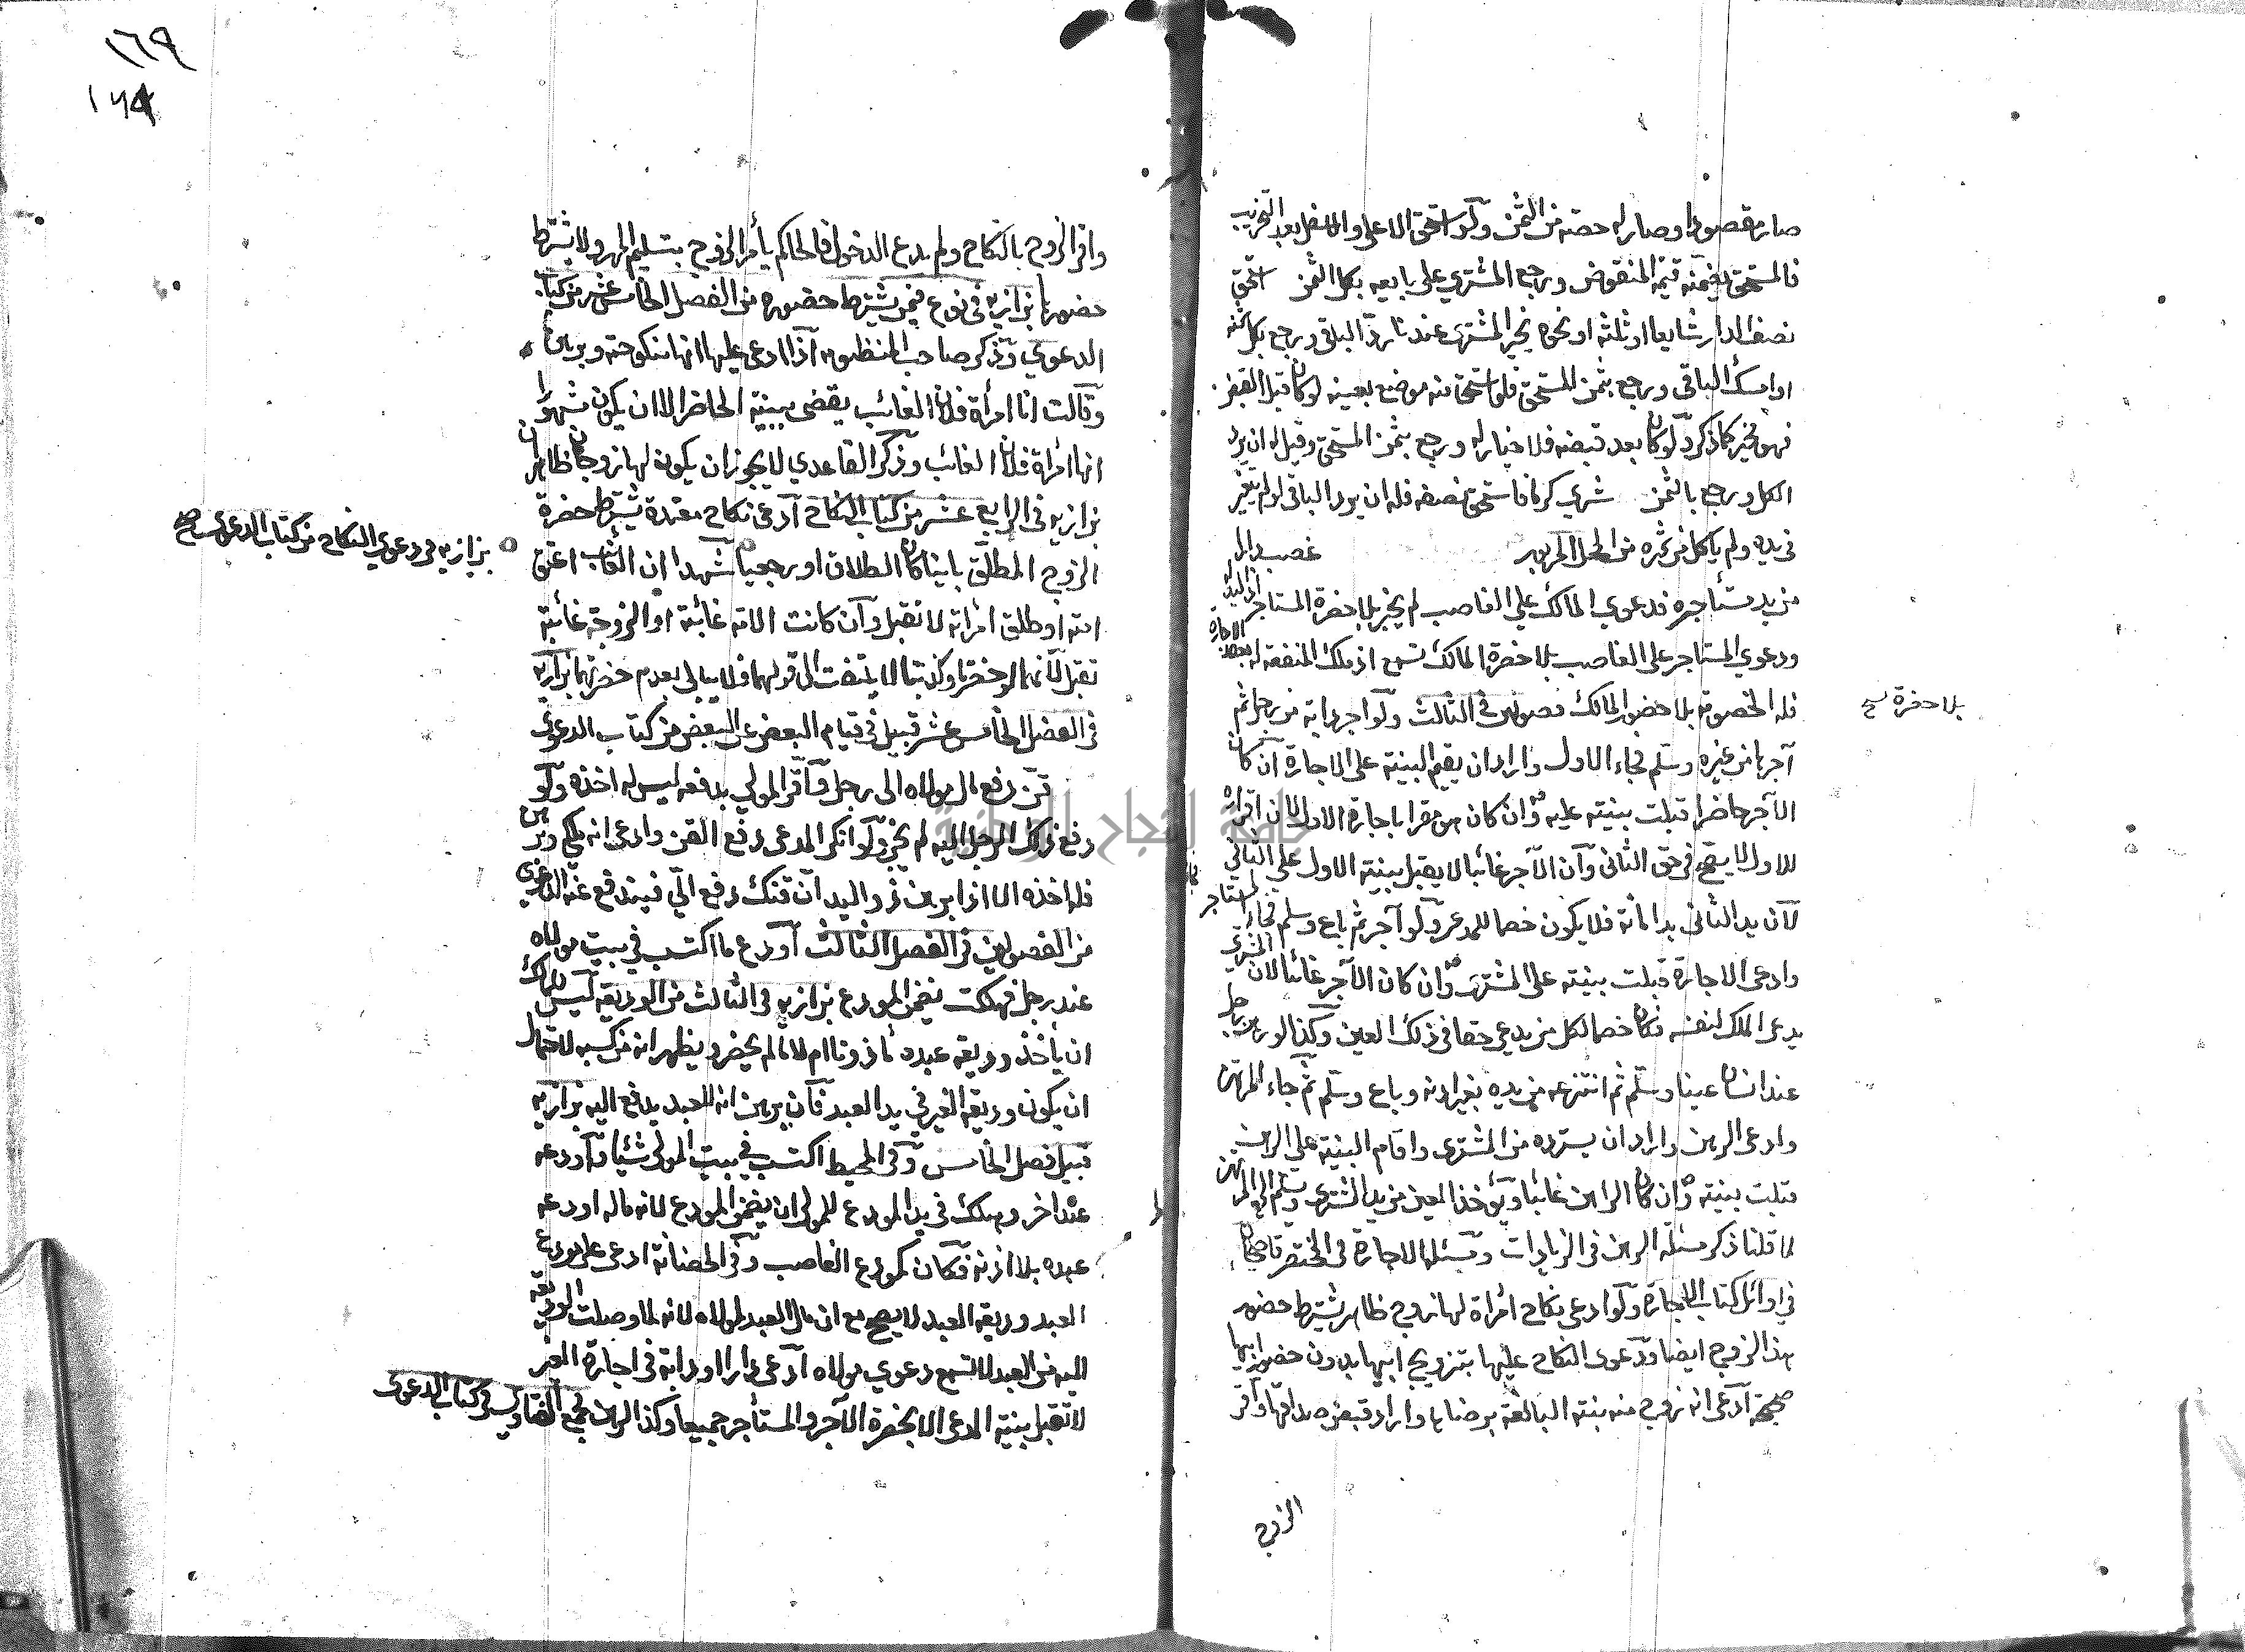 صار مقصودا وصار له حصته من الثمن ولو استحق الاعلى والاسفل بعد التخريب
فالمستحق يضمنه قيمة المنقوض ورجع المشتري على بايعه بكل الثمن استحق
نصف الدار شايعا او ثلثه او نحوه يخير المشترى عندنا رد الباقى ورجع بكل ثمنه
او امسك الباقى ورجع بثمن المستحق فلو استحق منه موضع بعينه لو كان قبل القبض
فهو مخير كما ذكر ولو كان بعد قبضه فلا خيار له ورجع بثمن المستحق وقيل له ان يرد
الكل ورجع بالثمن شرى كرما فاستحق نصفه فله ان يرد الباقى لو لم يتغير
فى يده ولم ياكل من ثمره من المحل المزبور غصب دابة
من يد مستأجره فدعوى المالك على الغاصب لم يجز بلا حضرة المستاجر اذ اليد له
ودعوى المستاجر على الغاصب بلا حضرة المالك تسمع اذ ملك المنفعة له بعقد الاجارة
فله الخصومة بلا حضور المالك فصولين فى الثالث ولو آجر دابة من رجل ثم
بلا حضرة صح
آجرها من غيره وسلم فجاء الاول واراد ان يقيم البينة على الاجارة ان كان
الآجر حاضرا قبلت بينته عليه وان كان هو مقرا باجارة الاول لان اقراره
للاول لا يصح فى حق الثانى وان الآجر غائبا لا يقبل بينة الاول على الثانى
لان يد الثانى يد امانة فلا يكون خصما للمدعى ولو آجر ثم باع وسلم فجاء المستاجر
وادعى الاجارة قبلت بينته على المشترى وان كان الآجر غائبا لان المشترى
يدعى الملك لنفسه فكان خصما لكل من يدعى حقا فى ذلك العين وكذا لو رهن رجل
عند انسان عينا وسلم ثم انتزعه من يده بغير اذنه وباع وسلم ثم جاء المرتهن
وادعى الرهن واراد ان يسترده من المشترى واقام البينة على الرهن
قبلت بينته وان كان الراهن غائبا ويؤخذ العين من يد المشترى ويسلم الى المرتهن
لما قلنا ذكر مسئلة الرهن فى الزيادات ومسئلة الاجارة فى المختصر قاضيخان
فى اوائل كتاب الاجارة ولو ادعى نكاح امرأة لها زوج ظاهر يشترط حضور
هذا الزوج ايضا ودعوى النكاح عليها بتزويج ابيها بدون حضور ابيها
صحيحة ادعى انه زوج منه بنته البالغة برضاها واراد قبض صداقها واقر
الزوج
١٦٩
واقر الزوج بالنكاح ولم يدع الدخول فالحاكم يأمر الزوج بتسليم المهر ولا يشترط
حضورها بزازية فى نوع فيمن يشترط حضوره من الفصل الخامس عشر من كتاب
الدعوى وذكر صاحب المنظومة اذا ادعى عليها انها منكوحته وبرهن
وقالت انا امرأة فلان الغائب يقضى ببينة الحاضر الا ان يكون مشهورا
انها امرأة فلان الغائب وذكر القاعدي لا يجوز ان يكون لها زوجان ظاهران
بزازية فى الرابع عشر من كتاب النكاح ادعى نكاح معتدة يشترط حضرة
بزازية فى دعوى النكاح من كتاب الدعوى صح
الزوج المطلق باينا كان الطلاق او رجعيا شهدا ان الغائب اعتق
امته او طلق امرأته لا تقبل وان كانت الامة غائبة او الزوجة غائبة
تقبل لانهما لو حضرتا وكذبتا لا يلتفت الى قولهما فلا يبالى بعدم حضرتهما بزازية
فى الفصل الخامس عشر قبيل فى قيام البعض عن البعض من كتاب الدعوى
قن دفع مال مولاه الى رجل واقر المولى بدفعه ليس له اخذه ولو
دفع ذلك الرجل اليه لم يجز ولو انكر المدعى دفع القن وادعى انه ملكه وبرهن
فله اخذه الا اذا برهن ذو اليد ان قنك دفع الىّ فيندفع عنه الدعوى
من الفصولين فى الفصل الثالث اودع ما اكتسب فى بيت مولاه
عند رجل فهلكت يضمن المودع بزازية فى الثالث من الوديعة ليس للمالك
ان يأخذ وديعة عبده مأذونا ام لا ما لم يحضر ويظهر انه من كسبه لاحتمال
ان يكون وديعة الغير فى يد العبد فان برهن انه للعبد يدفع اليه بزازية
قبيل فصل الخامس وفى المحيط اكتسب فى بيت المولى شيئا واودعه
عند اخر وهلك فى يد المودع للمولى ان يضمن المودع لانه ماله اودعه
عبده بلا اذنه فكان كمودع الغاصب وفى الحضانة ادعى على مودع
العبد وديعة العبد لا يصح مع ان مال العبد لمولاه لانه لما وصلت الوديعة
اليه من العبد لا تسمع دعوى مولاه ادعى دارا او دابة فى اجارة الغير
لا تقبل بينة المدعى الا بحضرة الآجر والمستأجر جميعا وكذا الرهن مجمع الفتاوى فى كتاب الدعوى
جامعة النجاح الوطنية